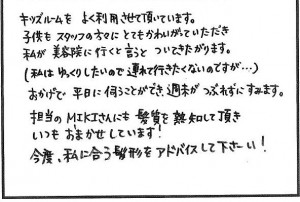 キッズルームを よく利用させて頂いています。
子供も スタッフの方々に とてもかわいがっていただき
私が 美容院に行くと言うと ついてきたがります。
(私は ゆっくりしたいので 連れて行きたくないのですが…)
おかげで 平日に伺うことができ、週末が つぶれずにすみます。
担当の MIKIさんにも 髪質を 熟知して頂き
いつも おまかせしています!
今度、私に合う髪形を アドバイスして下さい!